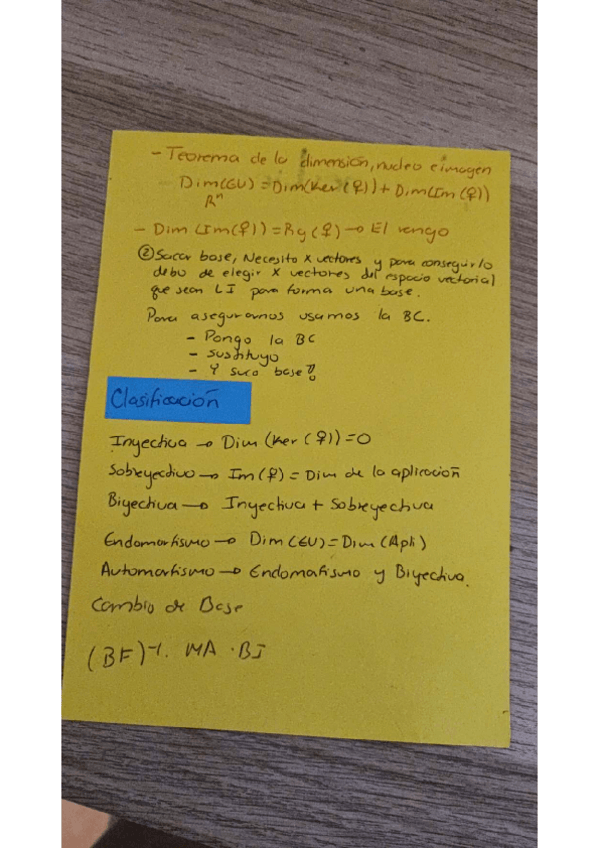 - Teorema de la dimension, nucleo e imagen
Dim(EV) = Dim(Ker(♀)) + Dim(Im(♀))
Rⁿ
- Dim(Im(♀)) = Rg(♀) → El rango
② Sacar base, Necesito X vectores y para conseguirlo
debo de elegir X vectores del espacio vectorial
que sean LI para forma una base.
Para asegurarnos usamos la BC.
- Pongo la BC
- Sustituyo
- Y saco base!!
Clasificación
Inyectiva → Dim (Ker (♀)) = 0
Sobreyectiva → Im(♀) = Dim de la aplicación
Biyectiva → Inyectiva + Sobreyectiva
Endomorfismo → Dim(EV) = Dim(Apli)
Automorfismo → Endomofismo y Biyectiva.
Cambio de Base
(BF)⁻¹. MA · BI